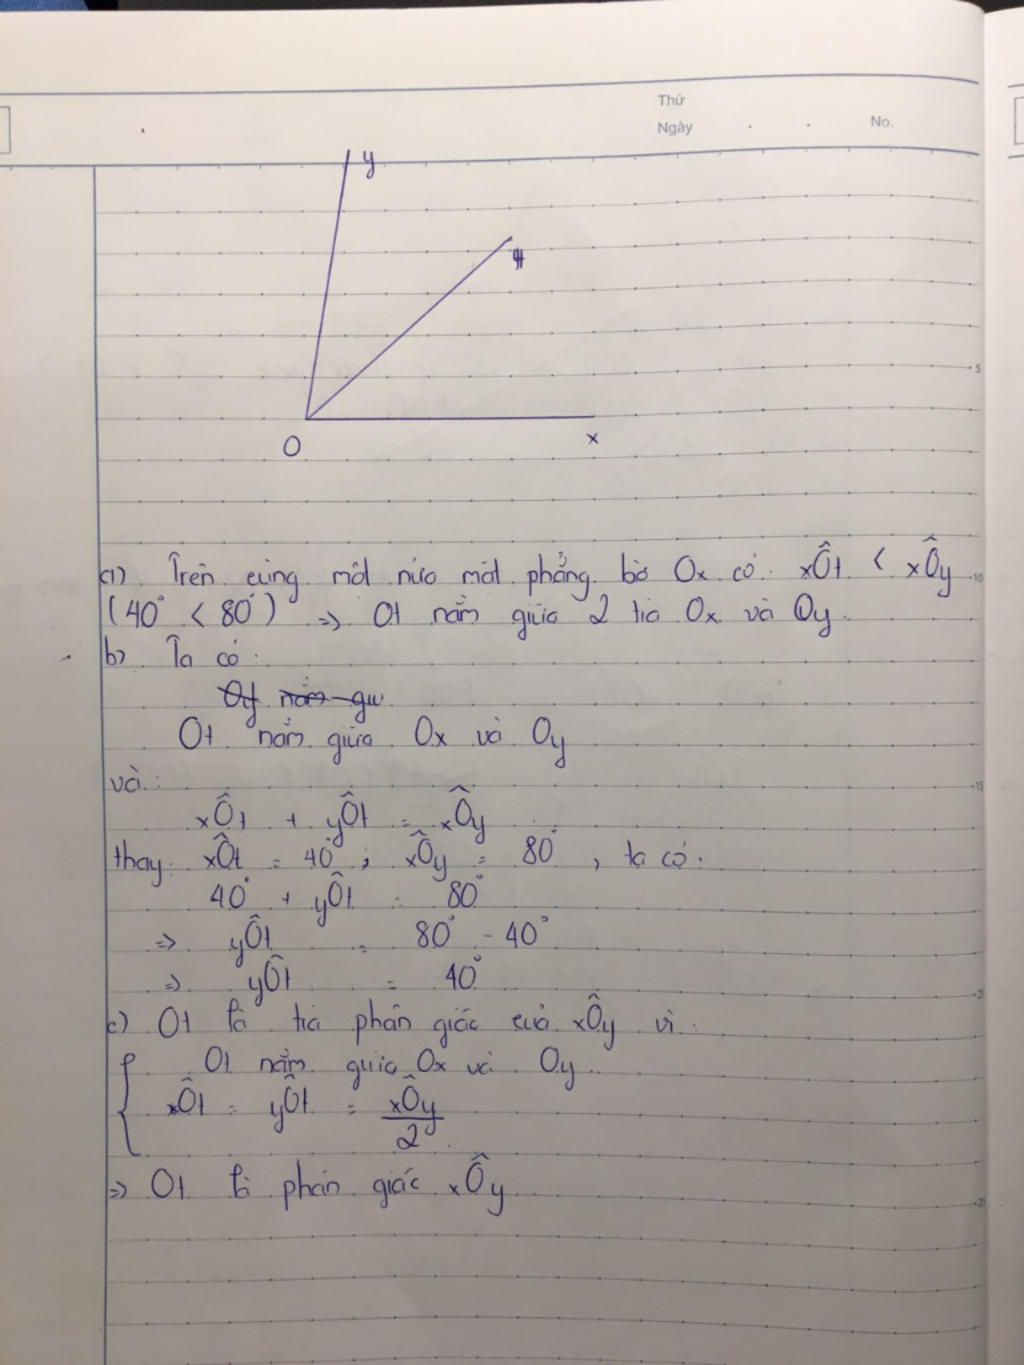 Thứ
Ngày . . No.
y
t
O x
5
a) Trên cùng một nửa mặt phẳng bờ Ox có: xÔt < xÔy
10
(40° < 80°) => Ot nằm giữa 2 tia Ox và Oy.
b) Ta có:
Oy nằm giữ
Ot nằm giữa Ox và Oy
và:
15
xÔt + yÔt = xÔy
thay: xÔt = 40°; xÔy = 80°, ta có:
40° + yÔt = 80°
=> yÔt = 80° - 40°
=> yÔt = 40°
20
c) Ot là tia phân giác của xÔy vì:
{ Ot nằm giữa Ox và Oy.
xÔt = yÔt = xÔy
2
=> Ot là phân giác xÔy
25